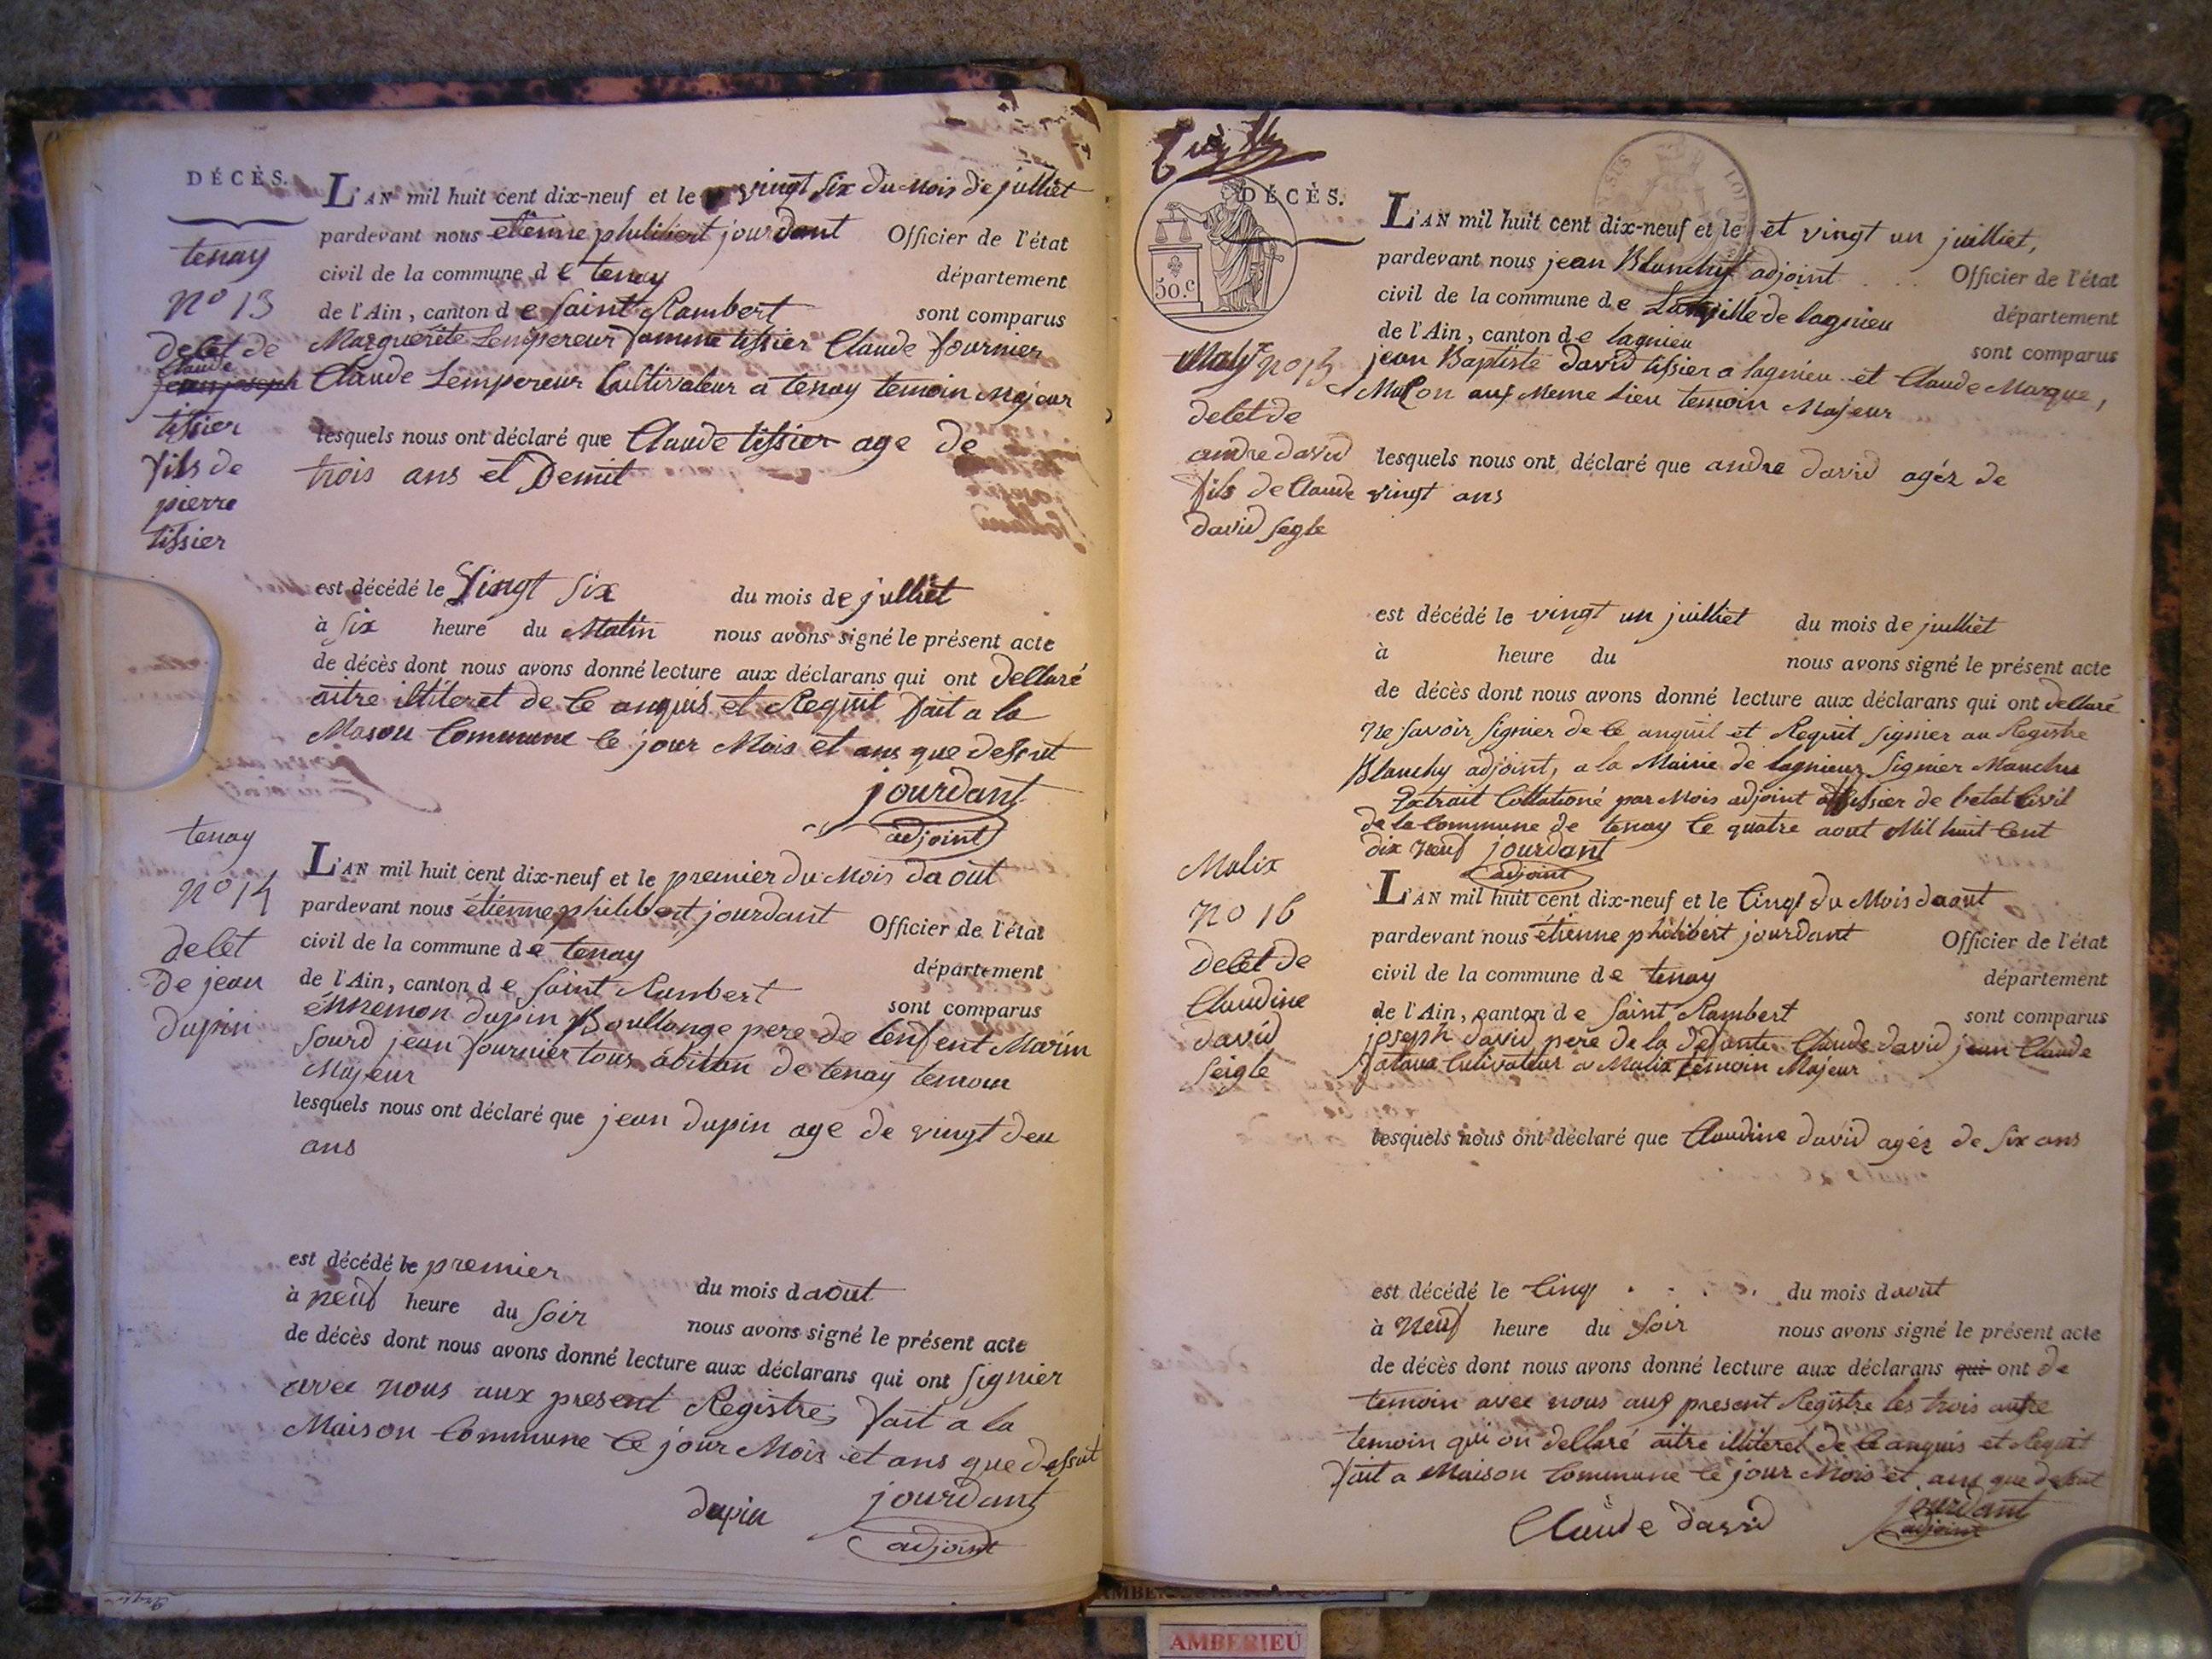 DÉCÈS.
tenay
no 13
decet de
Claude
jean joseph
tissier
fils de
pierre
tissier
L'AN mil huit cent dix-neuf et le vingt six du mois de julliet
pardevant nous etienne philibert jourdant Officier de l'état
civil de la commune de tenay département
de l'Ain, canton de saint Rambert sont comparus
Marguerite Lempereur famme tissier Claude fournier
Claude Lempereur Cultivateur a tenay temoin Majeur
lesquels nous ont déclaré que Claude tissier age de
trois ans et Demit
est décédé le Vingt Six du mois de julliet
à six heure du Matin nous avons signé le présent acte
de décès dont nous avons donné lecture aux déclarans qui ont dellaré
aitre illiteret de ce anquis et Requit fait a la
Mason Commune ce jour Mois et ans que dessut
jourdant
adjoint
tenay
no 14
decet
de jean
dupin
L'AN mil huit cent dix-neuf et le premier du Mois da out
pardevant nous étienne philibert jourdant Officier de l'état
civil de la commune de tenay département
de l'Ain, canton de saint Rambert sont comparus
énnemon dupin Boullange pere de lenfent Marin
sourd jean fournier tous abitan de tenay temoin
Majeur
lesquels nous ont déclaré que jean dupin age de vingt deu
ans
est décédé le premier du mois daout
à neuf heure du soir nous avons signé le présent acte
de décès dont nous avons donné lecture aux déclarans qui ont signier
avec nous aux present Registre, fait a la
Maison Commune ce jour Mois et ans que dessut
dupin jourdant
adjoint
DÉCÈS.
50.c
no 15
decet de
andre david
fils de Claude
david segle
L'AN mil huit cent dix-neuf et le et vingt un juilliet,
pardevant nous jean Blanchy adjoint Officier de l'état
civil de la commune de La ville de lagnieu département
de l'Ain, canton de lagnieu sont comparus
jean Baptiste david tissier a lagnieu et Claude Marque,
Maçon aux Meme Lieu temoin Majeur
lesquels nous ont déclaré que andre david agéz de
vingt ans
est décédé le vingt un juilliet du mois de julliet
à heure du nous avons signé le présent acte
de décès dont nous avons donné lecture aux déclarans qui ont dellaré
ne savoir signier de ce anquit et Requit signier au Registre
Blanchy adjoint, a la Mairie de lagnieux signier
Extrait Collationé par Mois adjoint offissier de letat Civil
de la Commune de tenay le quatre aout Mil huit Cent
dix neuf jourdant
adjoint
Malix
no 16
decet de
Claudine
david
seigle
L'AN mil huit cent dix-neuf et le Cinq du Mois daout
pardevant nous étienne philibert jourdant Officier de l'état
civil de la commune de tenay département
de l'Ain, canton de saint Rambert sont comparus
joseph david pere de la defunte Claude david jean Claude
Cultivateur a Malix témoin Majeur
lesquels nous ont déclaré que Claudine david agéz de six ans
est décédé le Cinq du mois daout
à neuf heure du soir nous avons signé le présent acte
de décès dont nous avons donné lecture aux déclarans qui ont de
temoin avec nous aux present Registre les trois autre
temoin qui on dellaré aitre illiteret de ce anquis et Requit
fait a Maison Commune ce jour Mois et ans que dessut
Claude david jourdant
adjoint
AMBERIEU